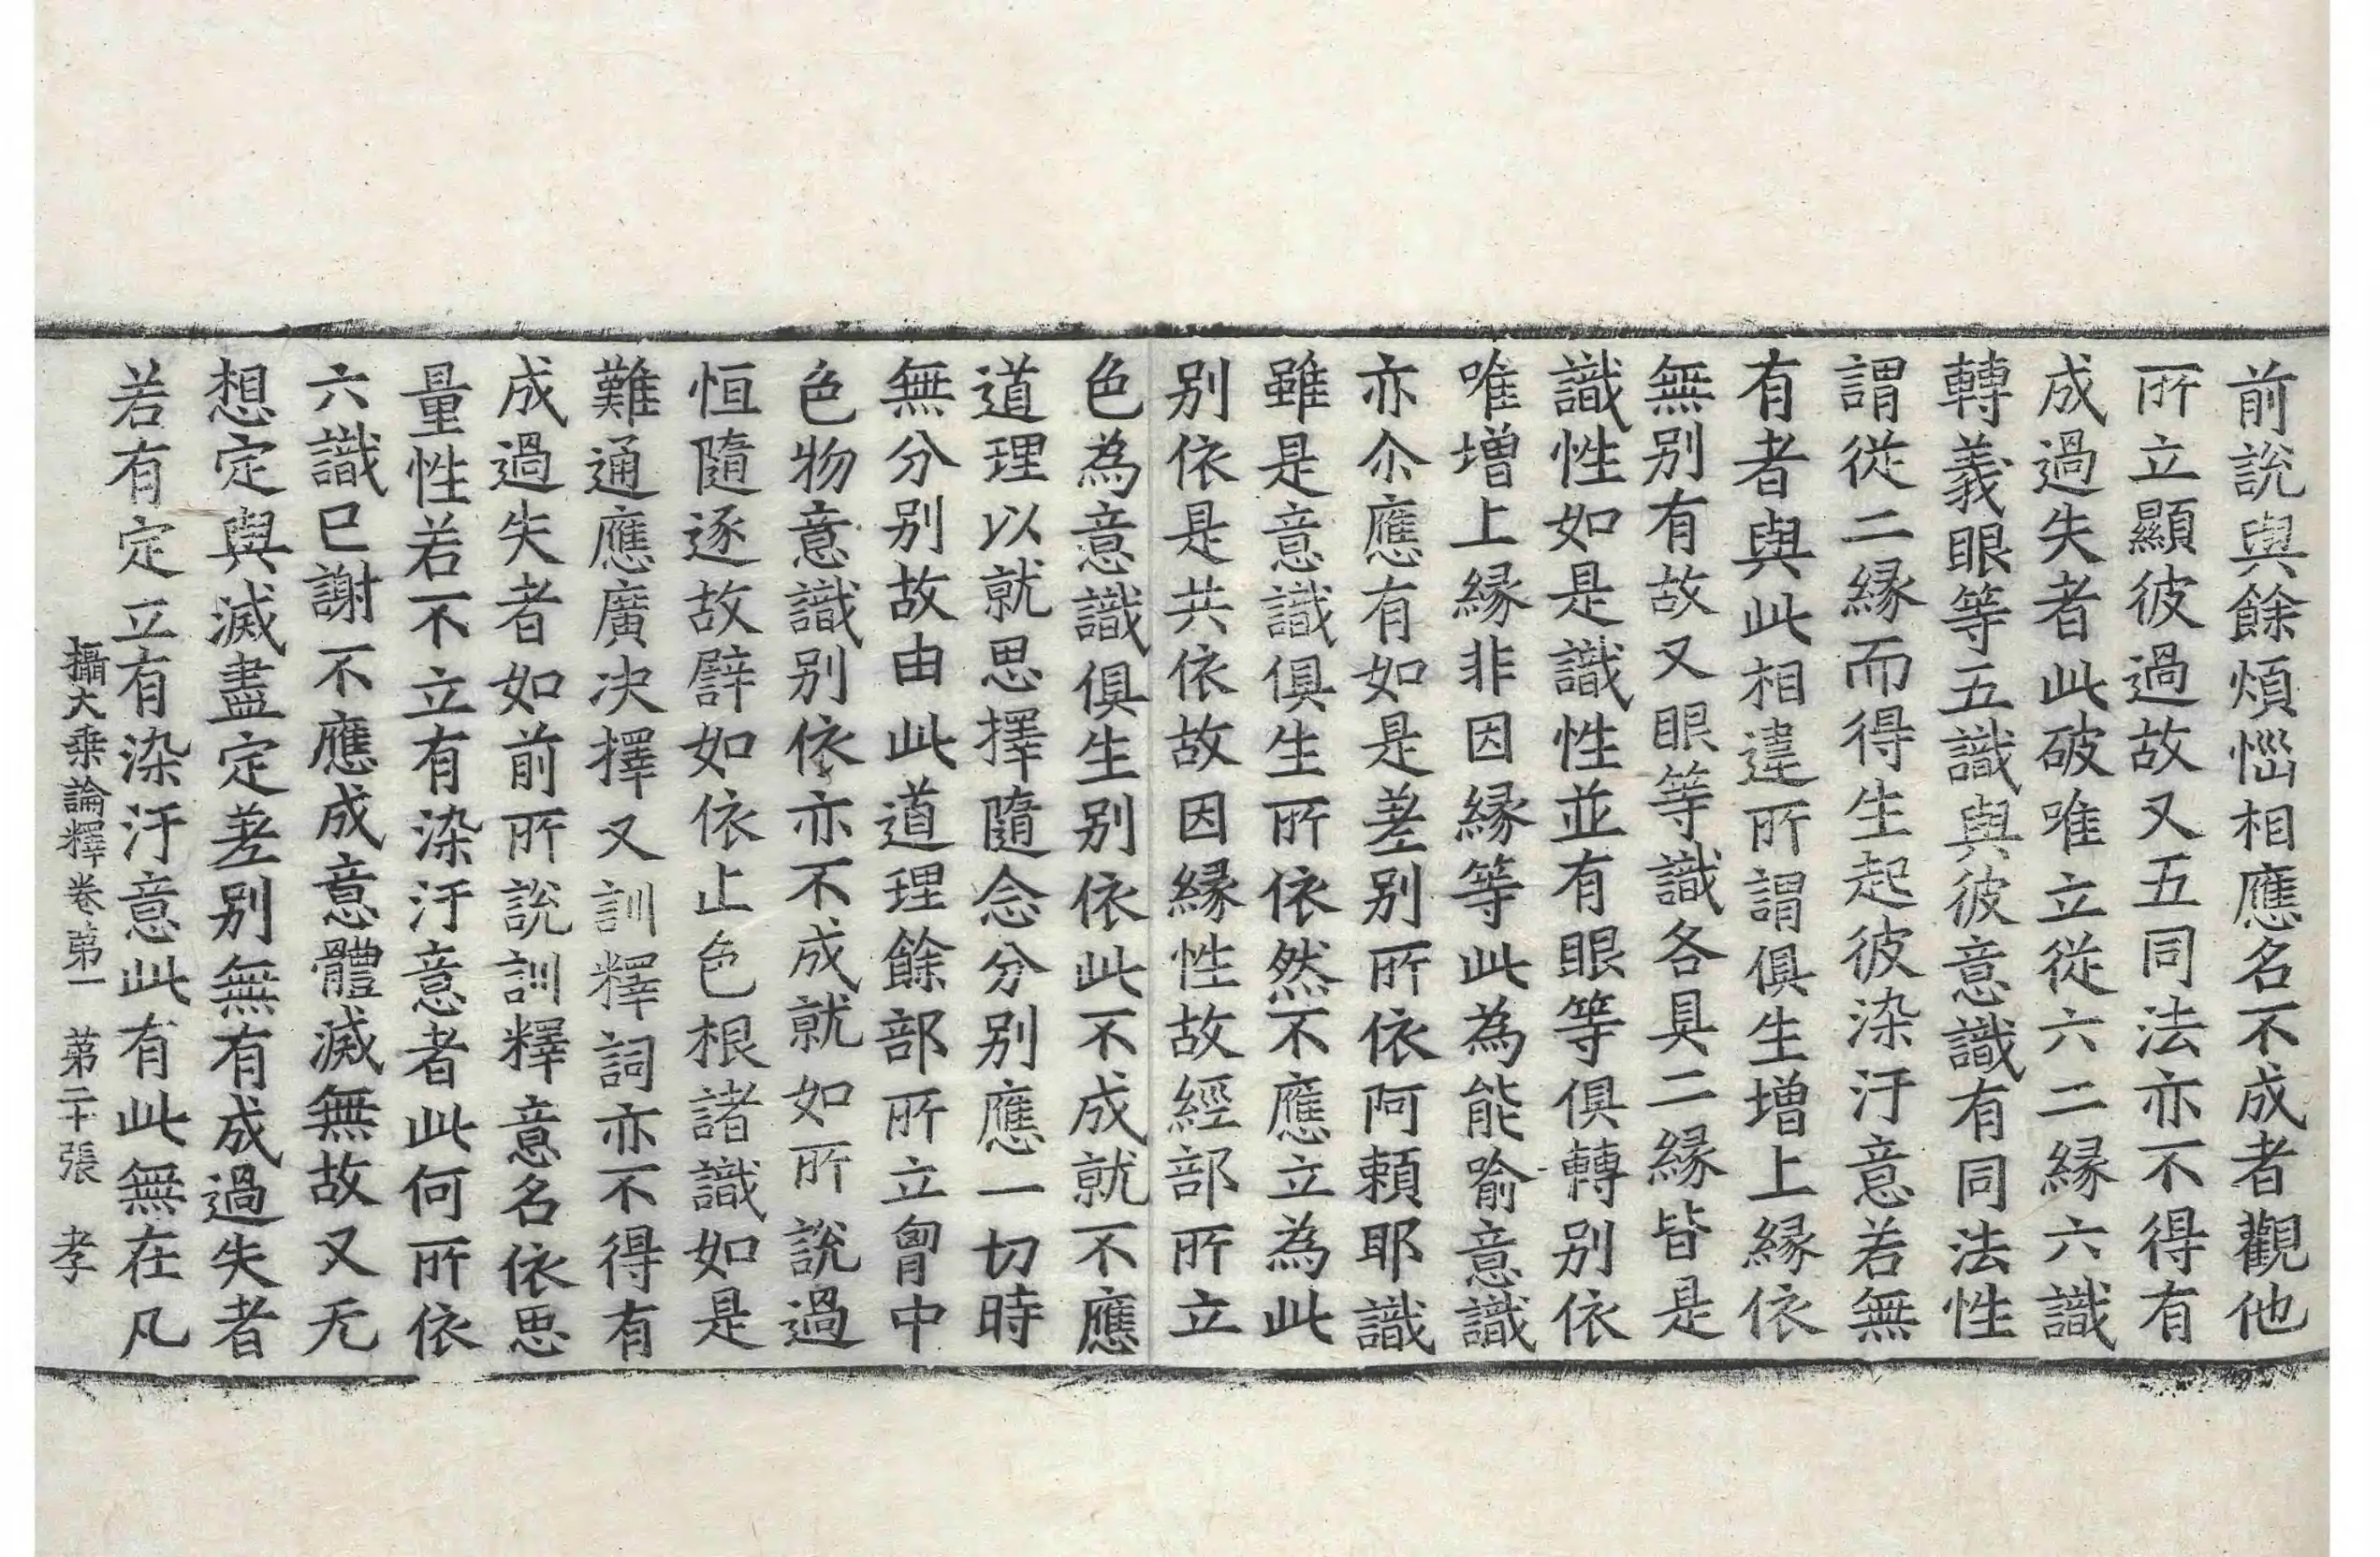 前說與餘煩惱相應名不成者觀他
所立顯彼過故又五同法亦不得有
成過失者此破唯立從六二緣六識
轉義眼等五識與彼意識有同法性
謂從二緣而得生起彼染汙意若無
有者與此相違所謂俱生增上緣依
無别有故又眼等識各具二緣皆是
識性如是識性並有眼等俱轉别依
唯增上緣非因緣等此為能喻意識
亦尒應有如是差别所依阿賴耶識
雖是意識俱生所依然不應立為此
别依是共依故因緣性故經部所立
色為意識俱生别依此不成就不應
道理以就思擇隨念分别應一切時
無分别故由此道理餘部所立胷中
色物意識别依亦不成就如所說過
恒隨逐故譬如依止色根諸識如是
難通應廣决擇又訓釋詞亦不得有
成過失者如前所說訓釋意名依思
量性若不立有染汙意者此何所依
六識已謝不應成意體滅無故又无
想定與滅盡定差别無有成過失者
若有定立有染汙意此有此無在凡
攝大乗論釋卷第一 第二十張 孝